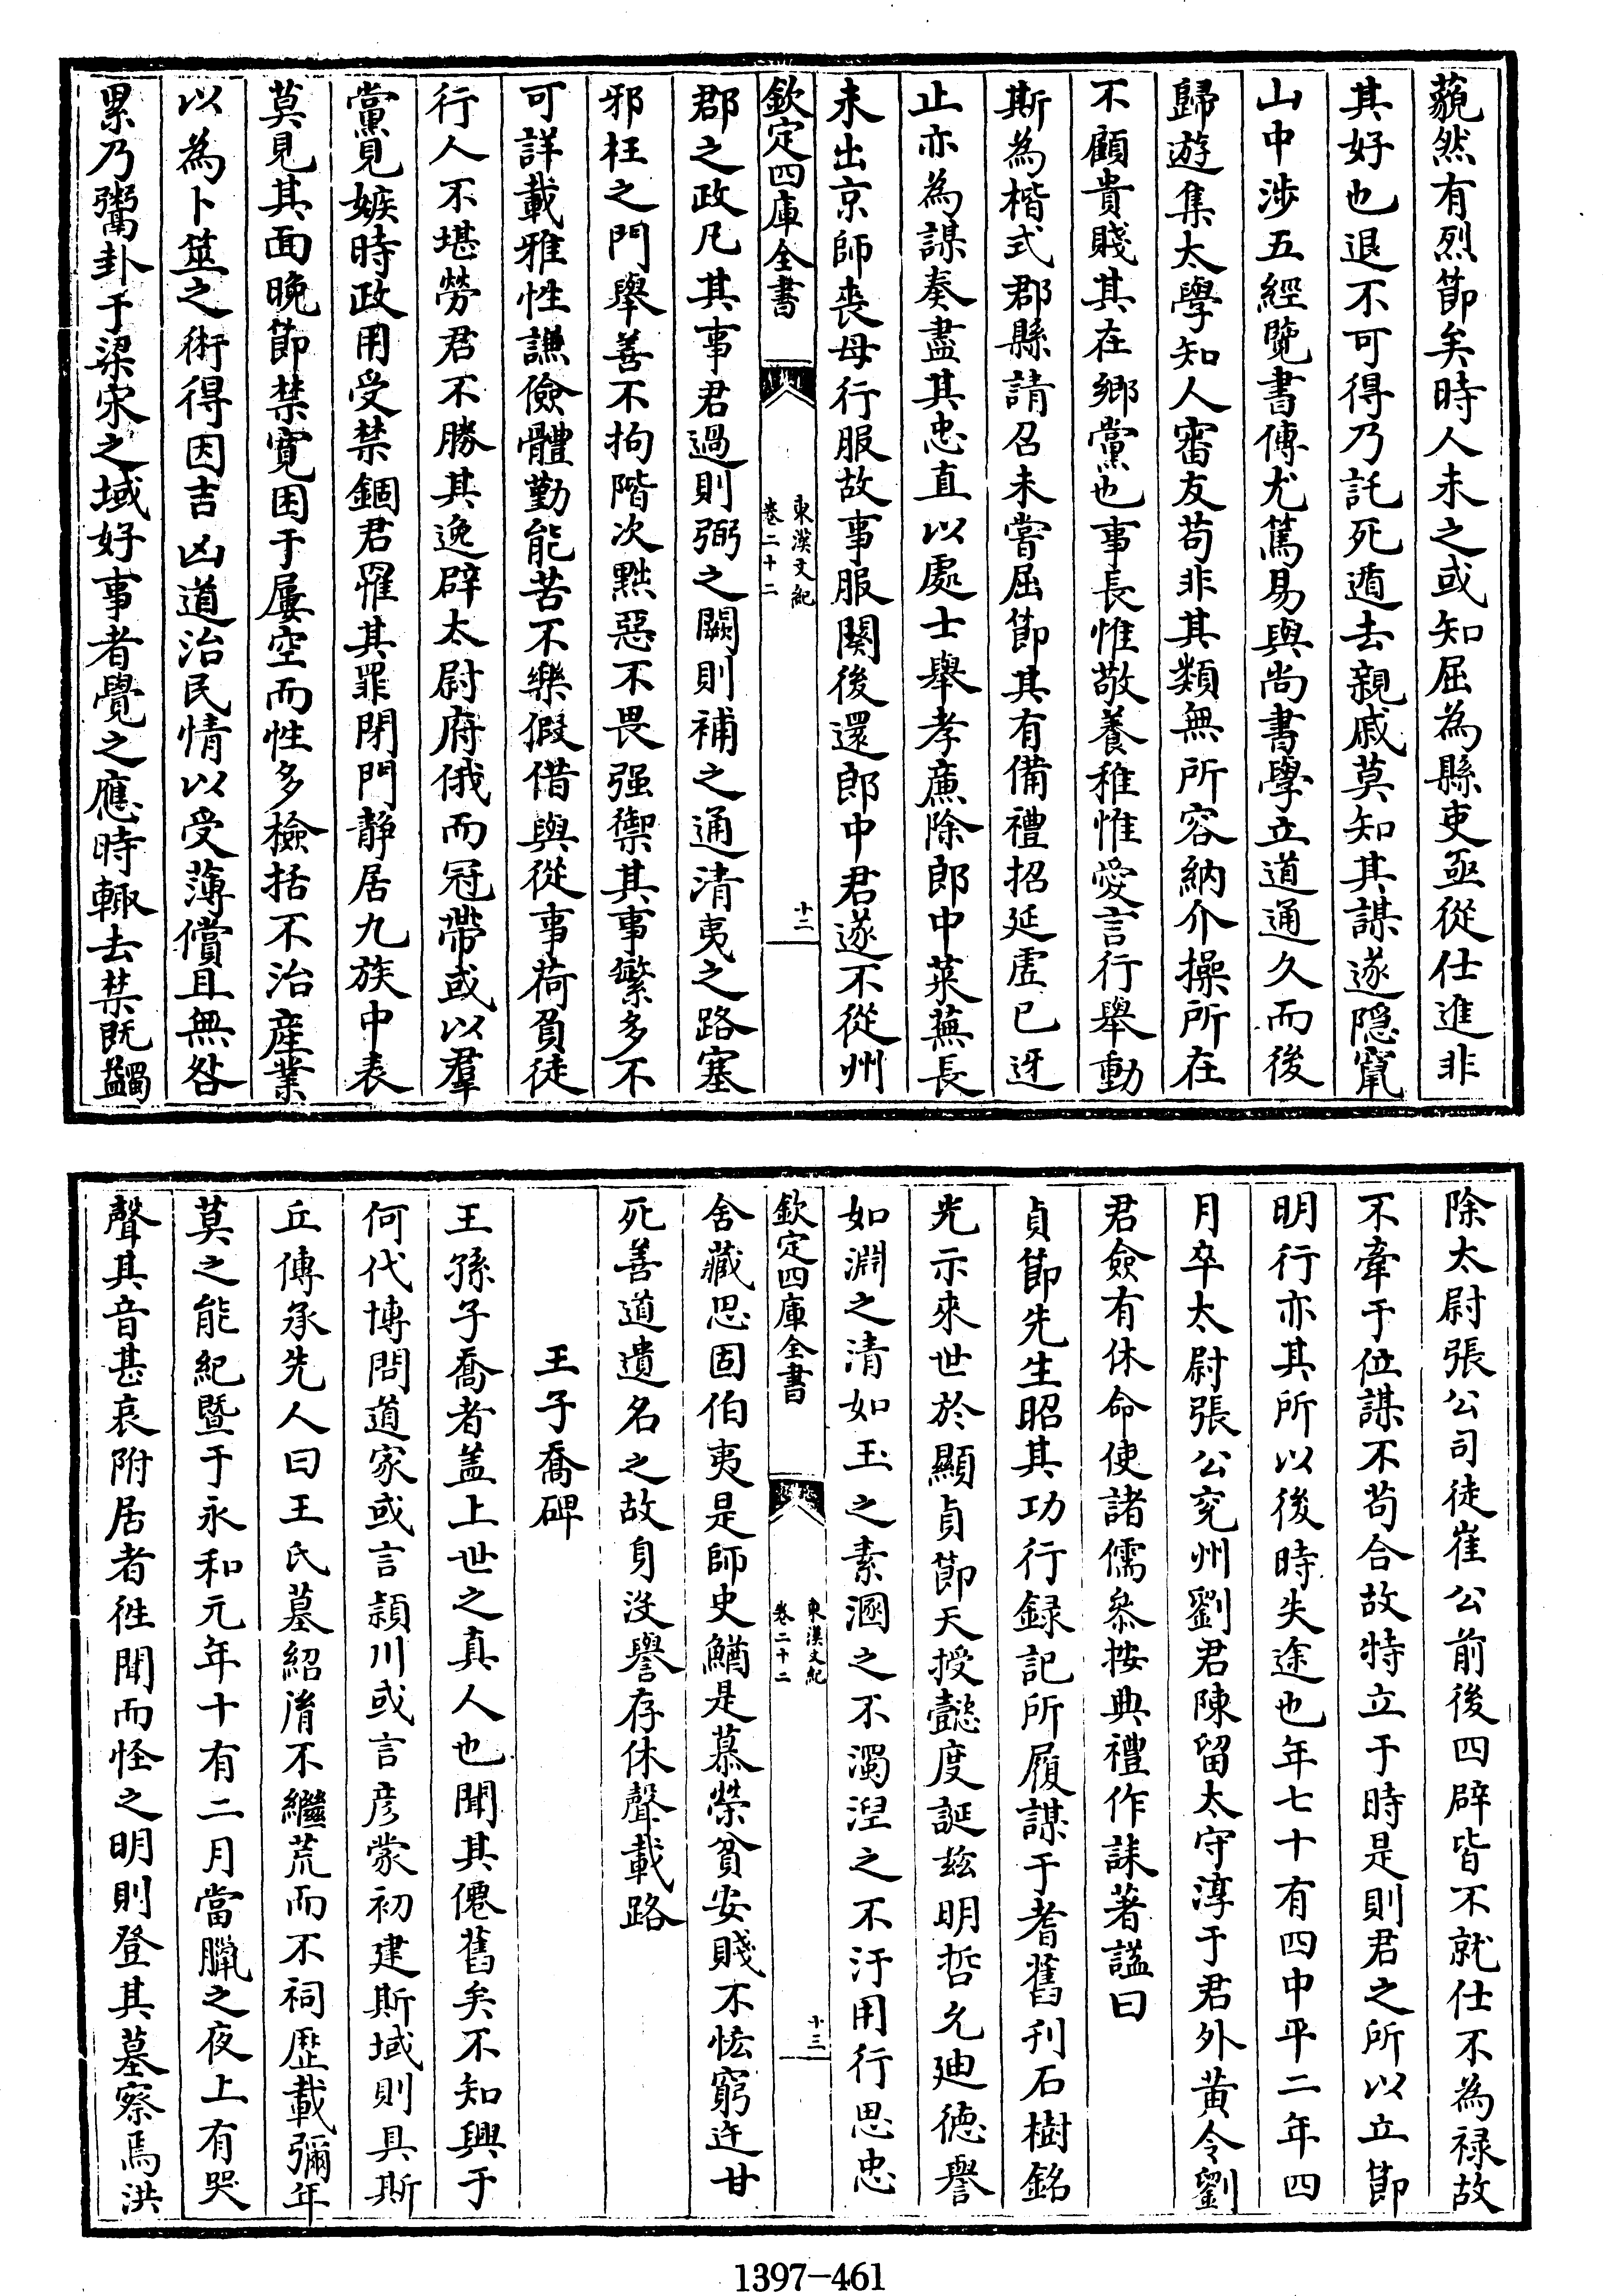 藐然有烈節矣時人未之或知屈為縣吏亟從仕進非
其好也退不可得乃託死遁去親戚莫知其謀遂隠竄
山中涉五經覽書傳尤篤易與尚書學立道通久而後
歸遊集太學知人審友苟非其類無所容納介操所在
不顧貴賤其在鄉黨也事長惟敬養稚惟愛言行舉動
斯為楷式郡縣請召未嘗屈節其有備禮招延虛已迓
止亦為謀奏盡其忠直以處士舉孝廉除郎中萊蕪長
未出京師喪母行服故事服闋後還郎中君遂不從州
欽定四庫全書
東漢文紀
卷二十二
十二
郡之政凡其事君過則弼之闕則補之通清夷之路塞
邪枉之門舉善不拘階次黜惡不畏强禦其事繁多不
可詳載雅性謙儉體勤能苦不樂假借與從事荷負徒
行人不堪勞君不勝其逸辟太尉府俄而冠帶或以羣
黨見嫉時政用受禁錮君罹其罪閉門静居九族中表
莫見其面晚節禁寬困于屢空而性多檢括不治産業
以為卜筮之術得因吉凶道治民情以受薄償且無咎
累乃鬻卦于梁宋之域好事者覺之應時輙去禁既蠲
除太尉張公司徒崔公前後四辟皆不就仕不為禄故
不牽于位謀不苟合故特立于時是則君之所以立節
明行亦其所以後時失途也年七十有四中平二年四
月卒太尉張公兖州劉君陳留太守淳于君外黄令劉
君僉有休命使諸儒叅按典禮作誄著諡曰
貞節先生昭其功行録記所履謀于耆舊刋石樹銘
光示來世於顯貞節天授懿度誕兹明哲允廸德譽
如淵之清如玉之素溷之不濁涅之不汙用行思忠
欽定四庫全書
東漢文紀
卷二十二
十三
舍藏思固伯夷是師史鰌是慕榮貧安賤不恡窮迕甘
死善道遺名之故身没譽存休聲載路
王子喬碑
王孫子喬者盖上世之真人也聞其僊舊矣不知興于
何代博問道家或言潁川或言彦蒙初建斯域則具斯
丘傳承先人曰王氏墓紹胤不繼荒而不祠歴載彌年
莫之能紀暨于永和元年十有二月當臘之夜上有哭
聲其音甚哀附居者徃聞而怪之明則登其墓察焉洪
1397-461